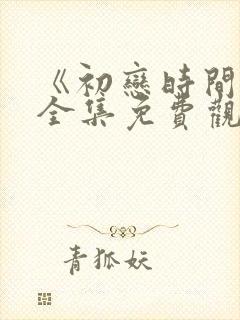 《初戀時間
全集免費觀
青狐妖